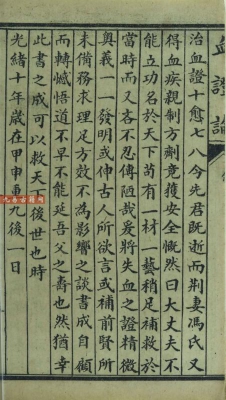 治血證十愈七八今先君既逝而荆妻馮氏又
得血疾親制方劑竟獲安全慨然曰大丈夫不
能立功名於天下苟有一材一藝稍足補救於
當時而又吝不忍傳陋哉爰將失血之證精微
奥義一一發明或伸古人所欲言或補前賢所
未備務求理足方效不為影響之談書成自顧
而轉憾悟道不早不能延吾父之壽也然猶幸
此書之成可以救天下後世也時
光緒十年歲在甲申重九後一日
血證論
九易古籍网